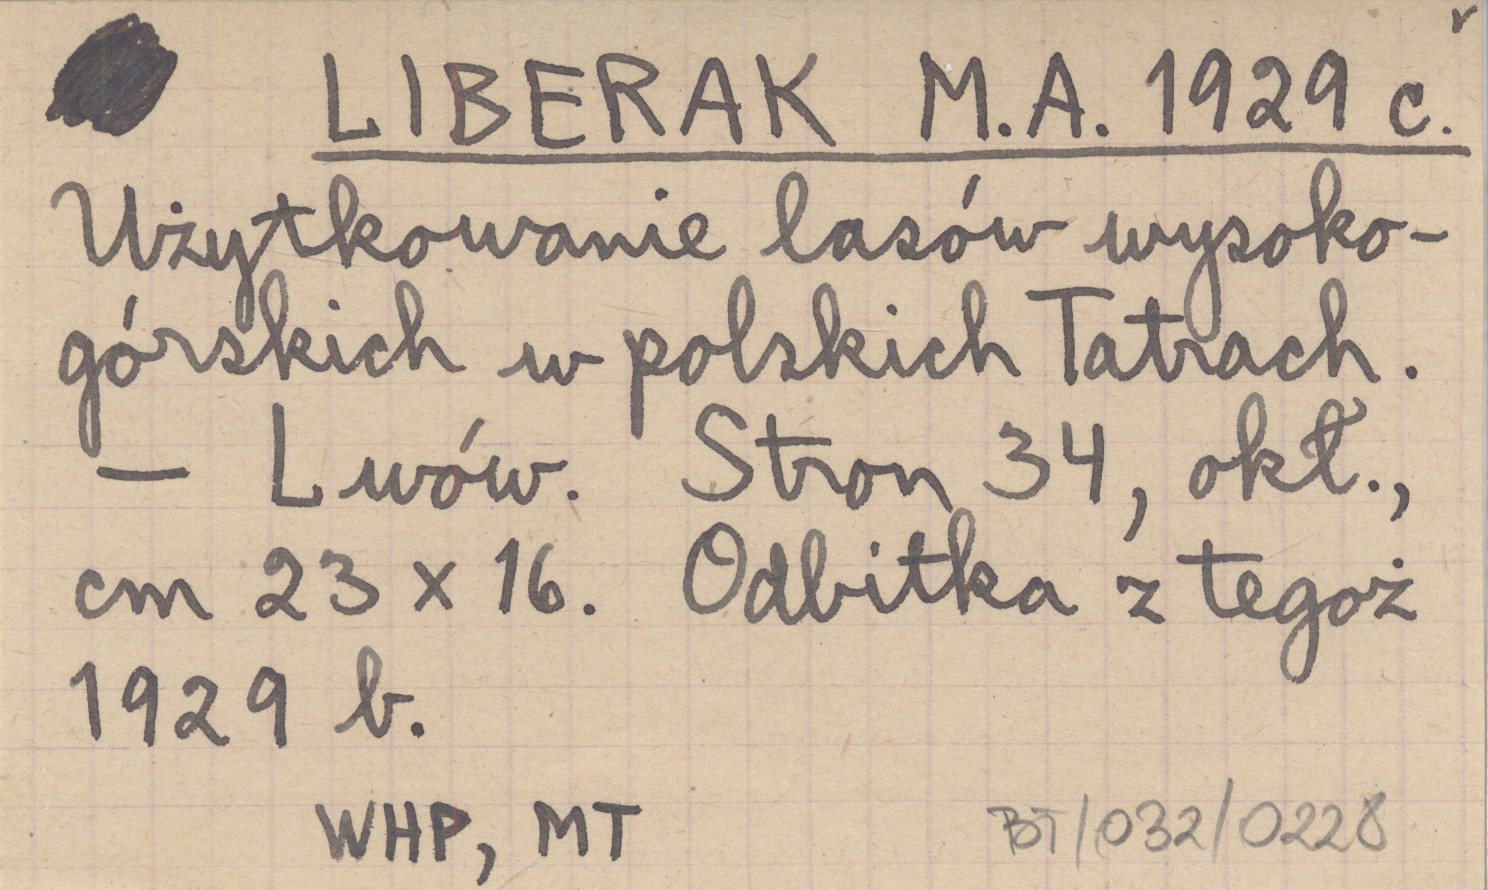 LIBERAK M.A. 1929 c.
Użytkowanie lasów wysoko-
górskich w polskich Tatrach.
— Lwów. Stron 34, okł.,
cm 23 x 16. Odbitka z tegoż
1929 b.
WHP, MT
BT/032/0228